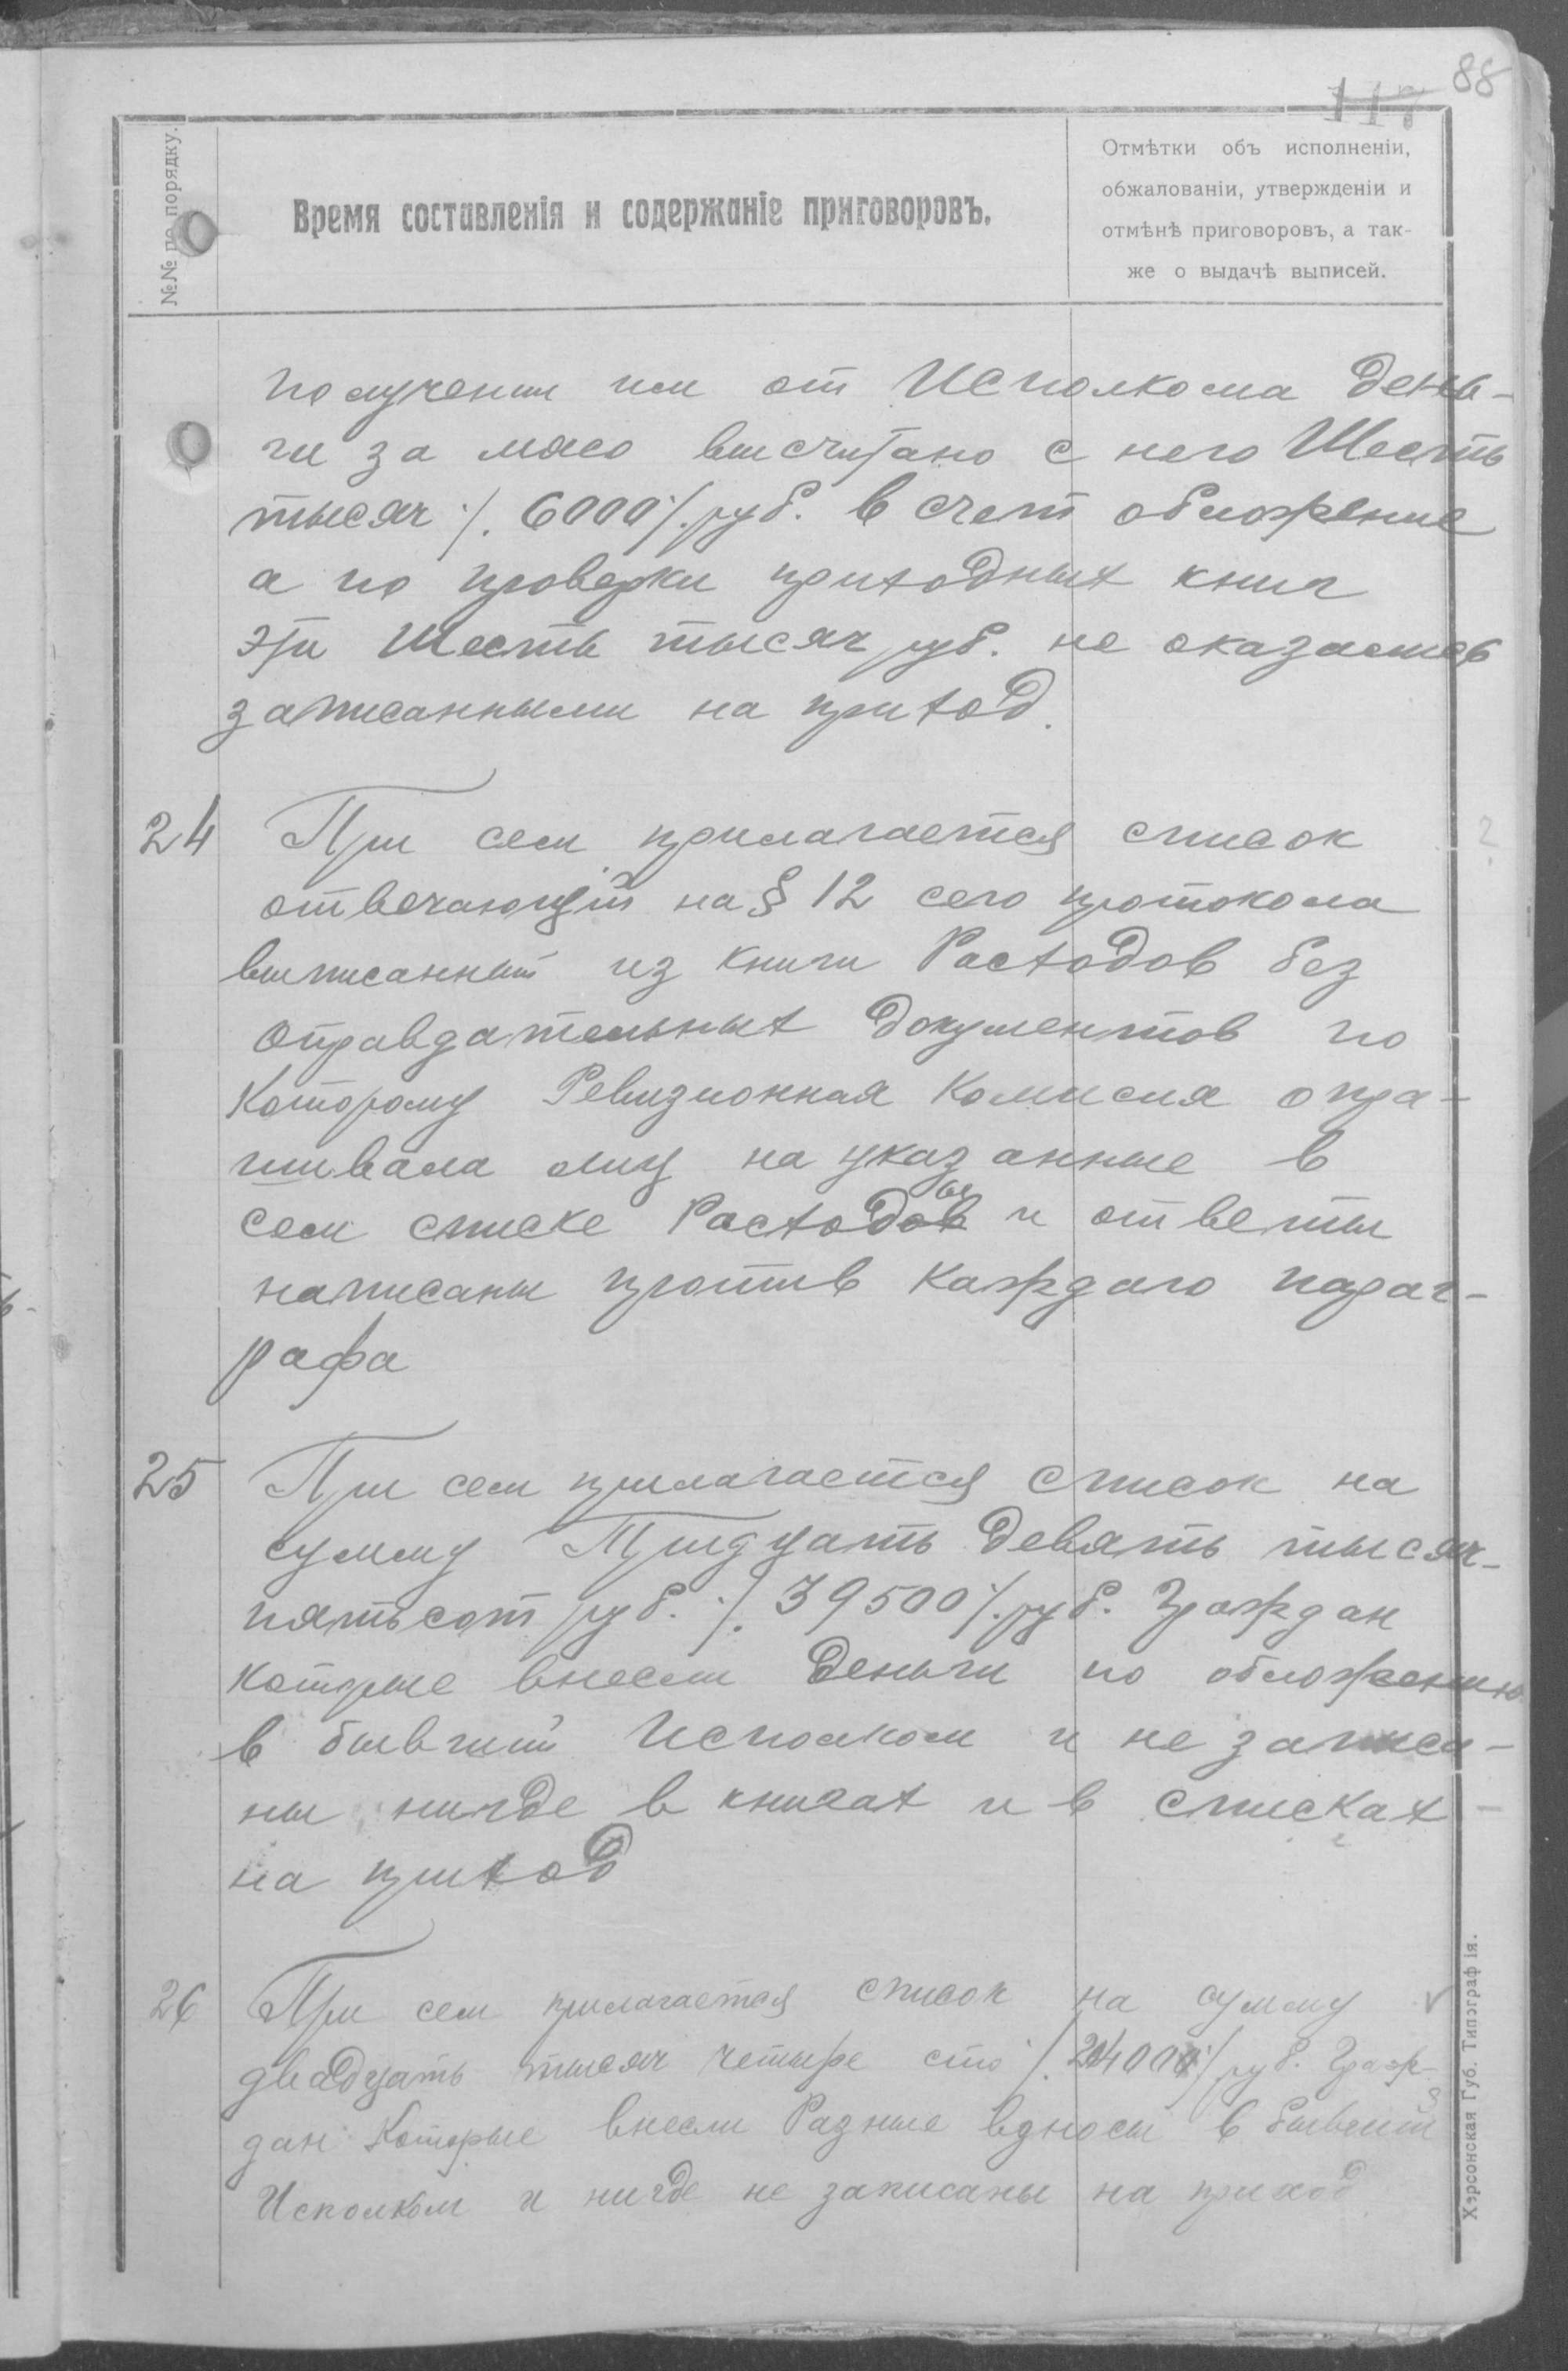 88
117
№№ по порядку.
Время составленія и содержаніе приговоровъ.
Отмѣтки объ исполненіи,
обжалованіи, утвержденіи и
отмѣнѣ приговоровъ, а так-
же о выдачѣ выписей.
получении им от Исполкома день-
ги за мясо высчитано с него Шесть
тысяч ./. 6000 ./. руб. в счет обложение
а по проверки приходных книг
эти Шесть тысяч руб. не оказались
записанными на приход.
24 При сем прилагается список
отвечающий на § 12 сего протокола
выписанный из книги Расходов без
оправдательных документов по
которому Ревизионная Комисия опра-
шивала лиц на указанные в
сем списке Расходы и ответы
написаны против каждаго параг-
рафа
25 При сем прилагается список на
сумму Тридцать девять тысяч-
пятьсот руб. ./. 39500 ./. руб. Граждан
которые внесли деньги по обложению
в бывший Исполком и не записа-
ны нигде в книгах и в списках -
на приход
26 При сем прилагается список на сумму
двадцать тысяч четыре сто ./. руб. Граж-
дан Которые внесли Разные взносы в бывший
Исполком и нигде не записаны на приход
Херсонская Губ. Типографія.